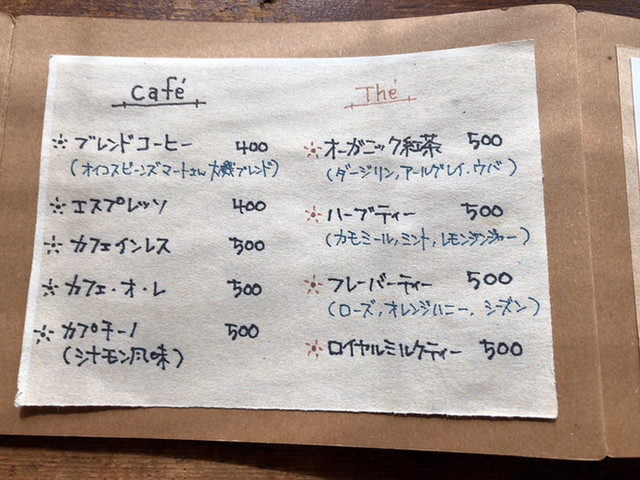 Café
※ ブレンドコーヒー 400
(オイコスビーンズマートさん ブレンド)
※ エスプレッソ 400
※ カフェインレス 500
※ カフェ・オ・レ 500
※ カプチーノ 500
(シナモン風味)
Thé
オーガニック紅茶 500
(ダージリン,アールグレイ,ウバ)
ハーブティー 500
(カモミール,ミント,レモンジンジャー)
フレーバーティー 500
(ローズ,オレンジハニー,シーズン)
ロイヤルミルクティー 500